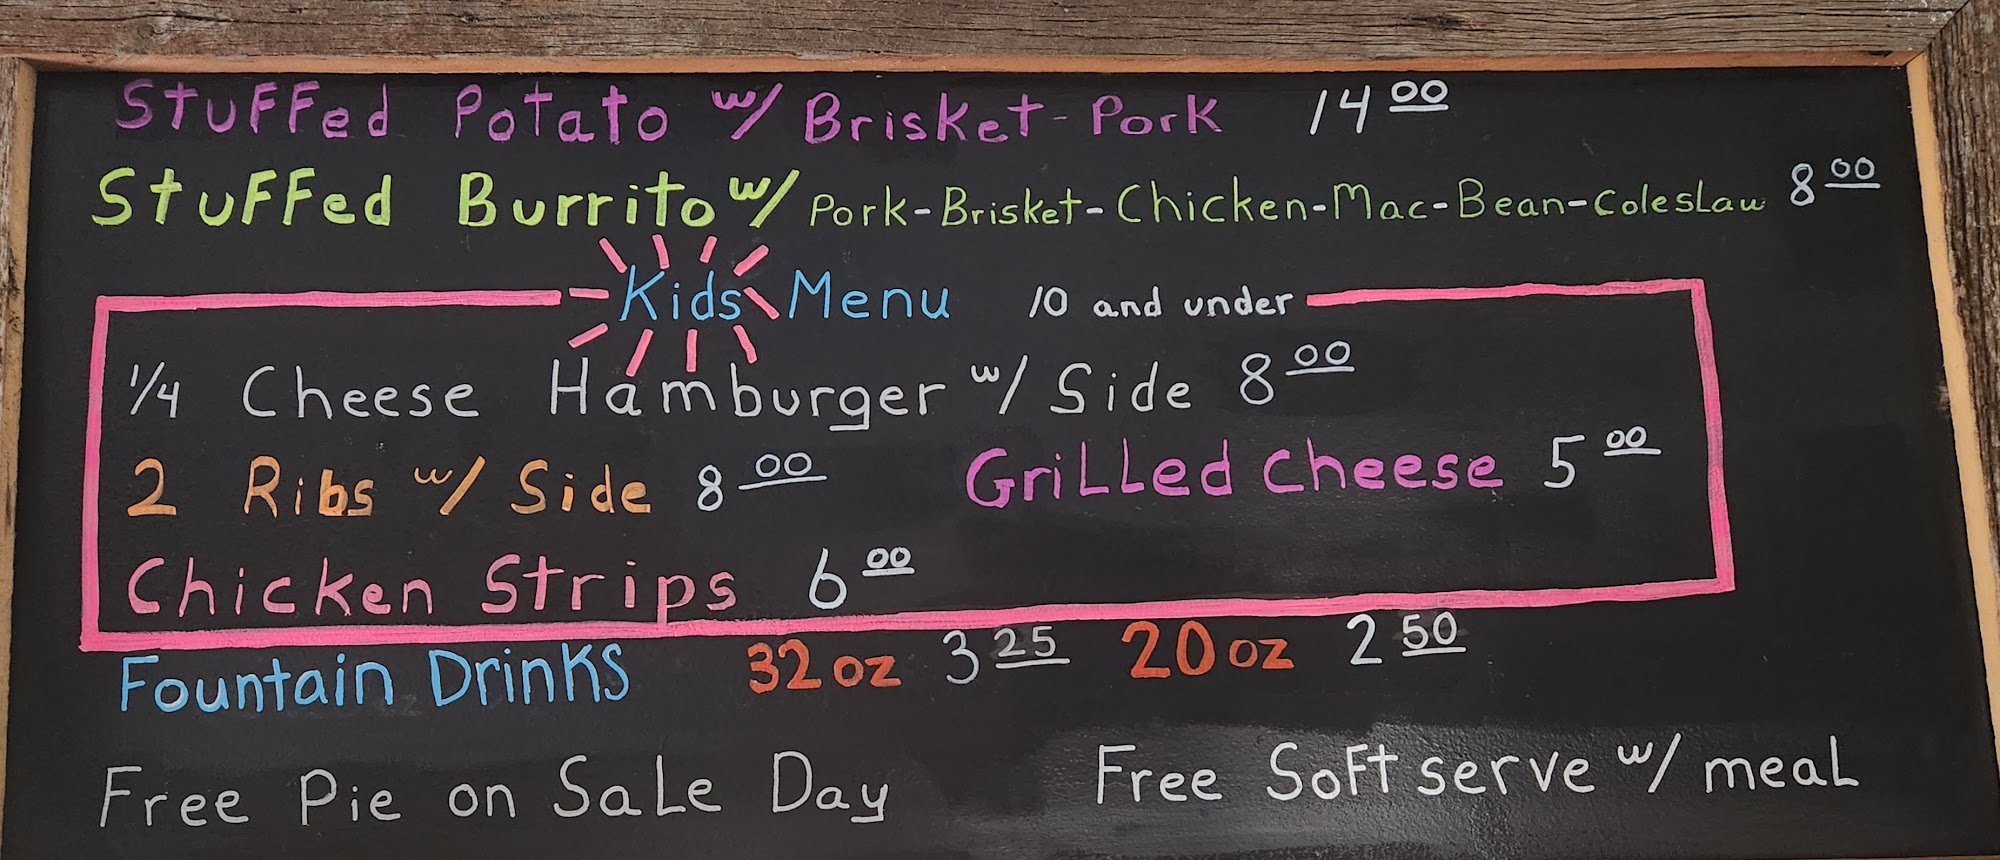 Stuffed Potato w/ Brisket-Pork 14 00
Stuffed Burrito w/ Pork-Brisket-Chicken-Mac-Bean-Coleslaw 8 00
Kids Menu 10 and under
1/4 Cheese Hamburger w/ Side 8 00
2 Ribs w/ Side 8 00 Grilled Cheese 5 00
Chicken Strips 6 00
Fountain Drinks 32 oz 3 25 20 oz 2 50
Free Pie on Sale Day Free Soft serve w/ meal